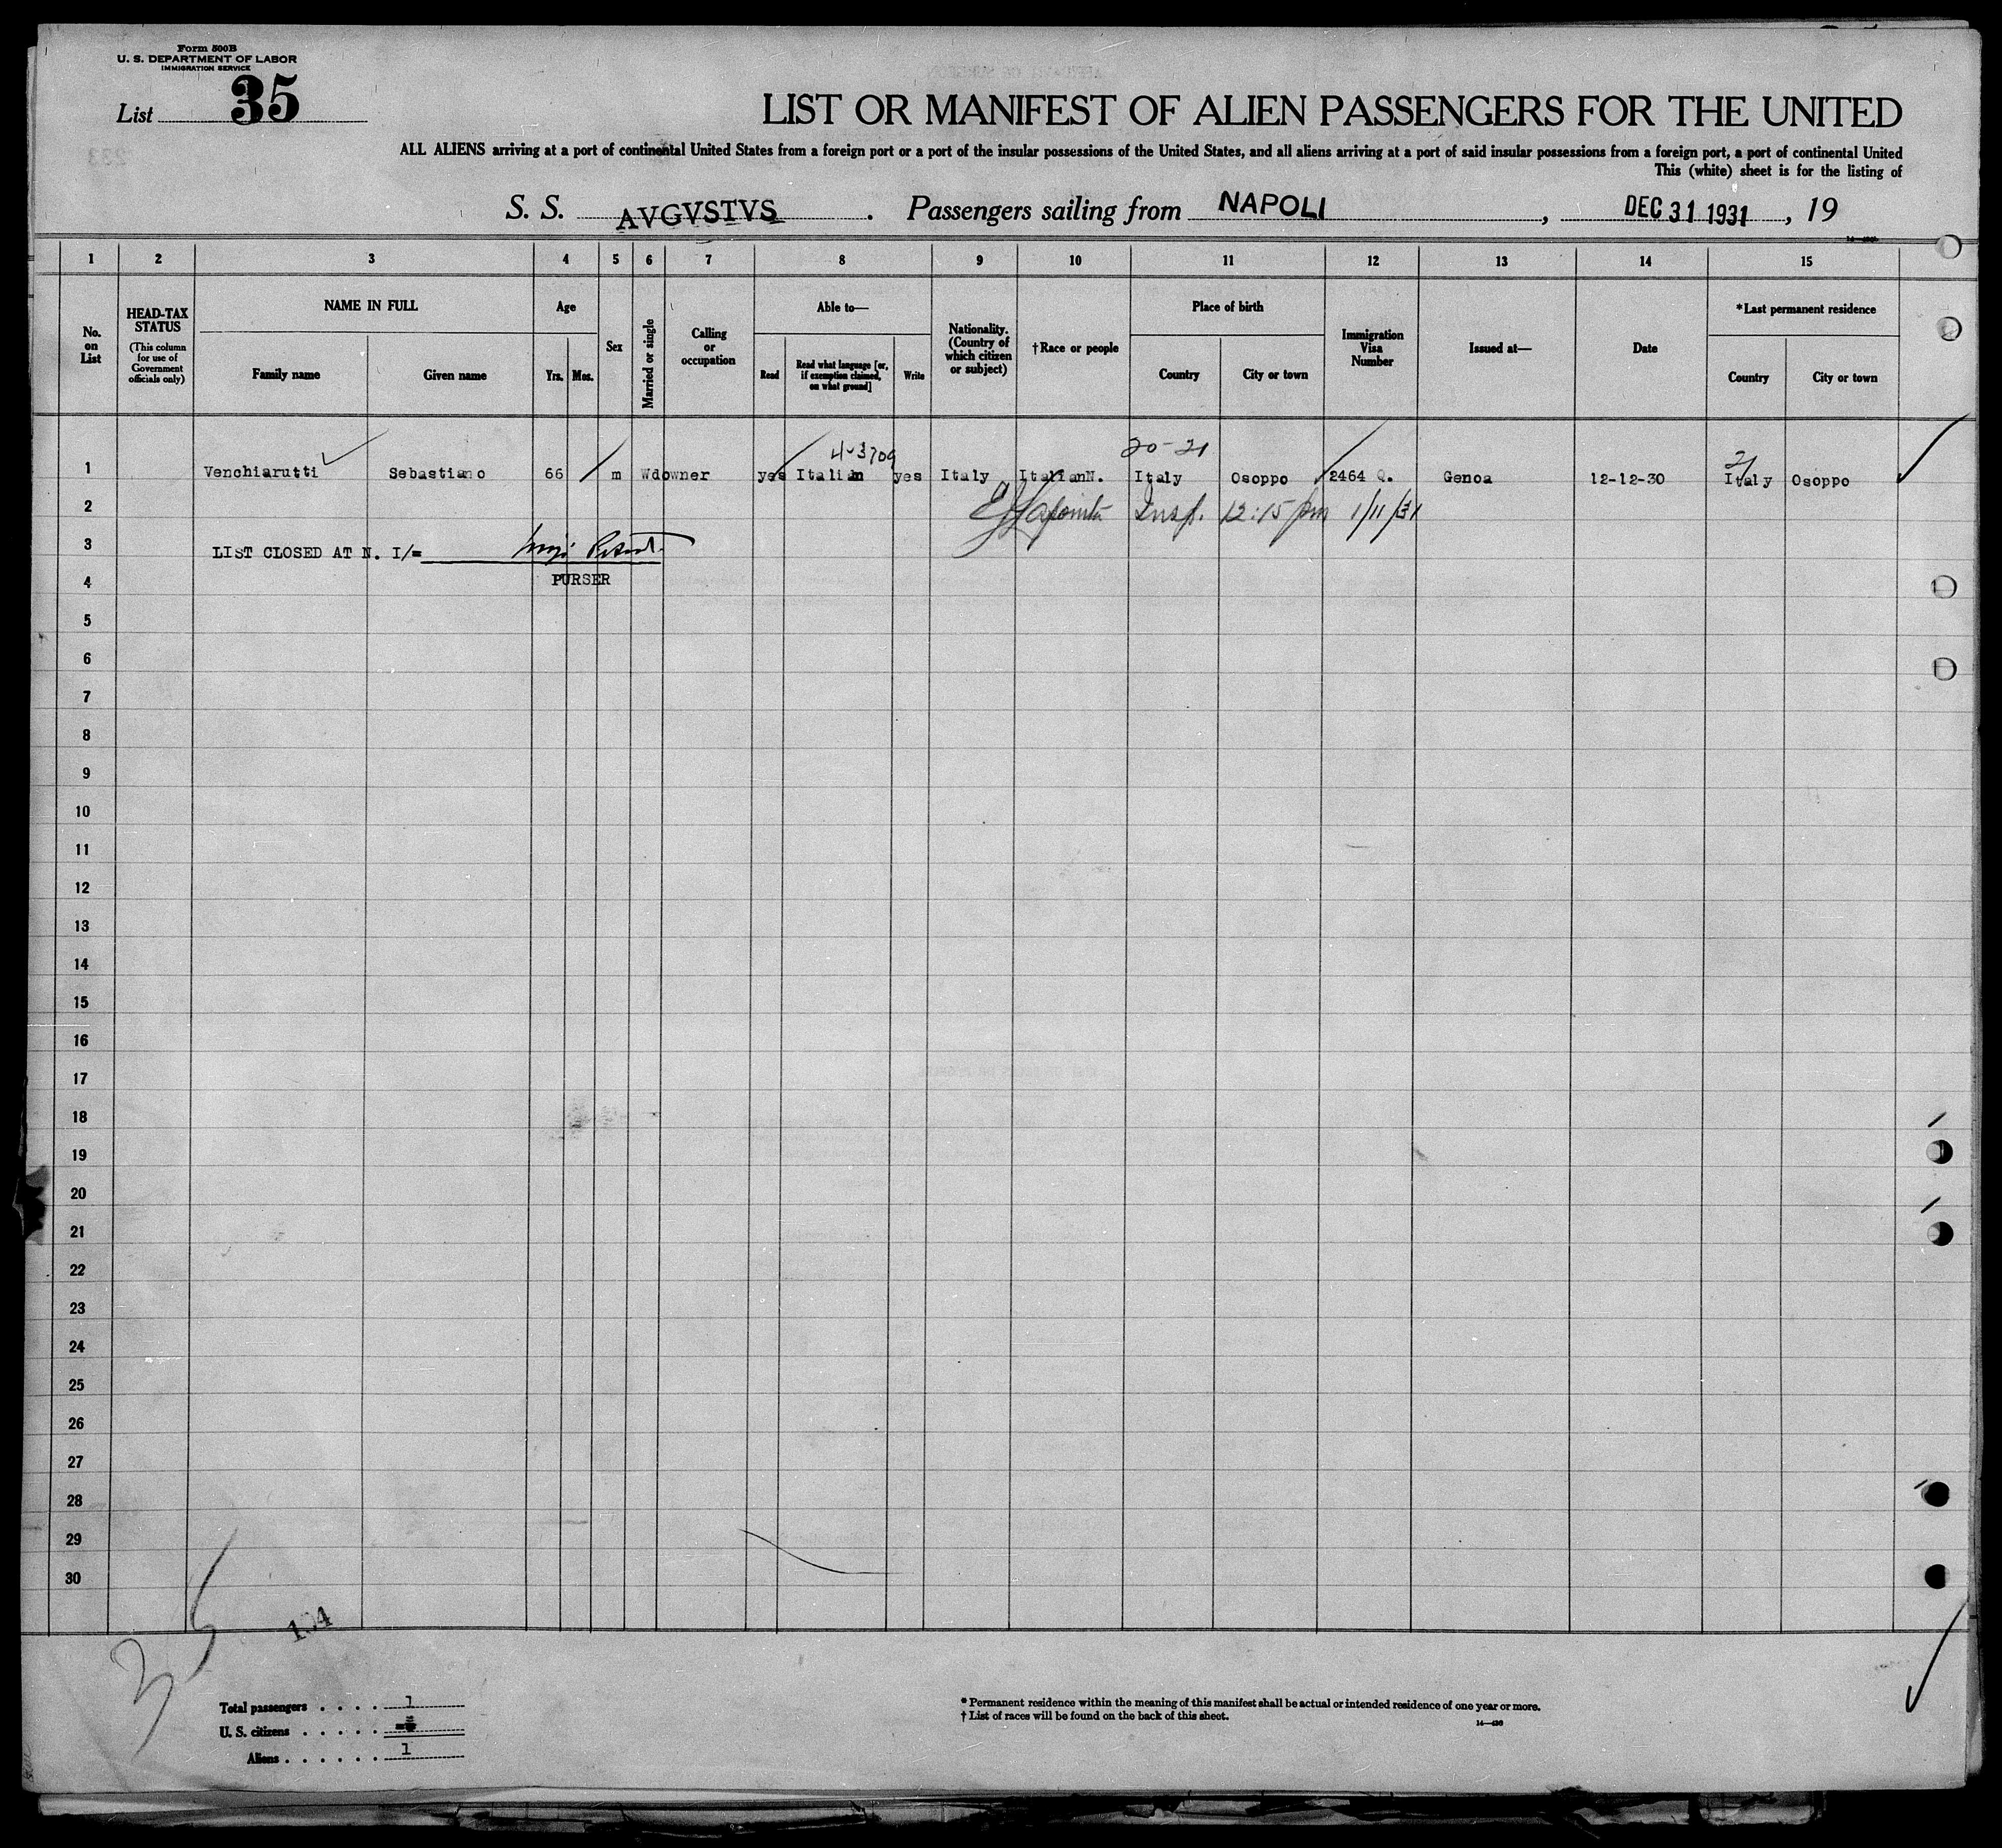 Form 500B
U. S. DEPARTMENT OF LABOR
IMMIGRATION SERVICE
List 35
LIST OR MANIFEST OF ALIEN PASSENGERS FOR THE UNITED
ALL ALIENS arriving at a port of continental United States from a foreign port or a port of the insular possessions of the United States, and all aliens arriving at a port of said insular possessions from a foreign port, a port of continental United
This (white) sheet is for the listing of
S. S. AVGVSTVS . Passengers sailing from NAPOLI , DEC 31 1931 , 19
1 2 3 4 5 6 7 8 9 10 11 12 13 14 15
No. on List
HEAD-TAX STATUS (This column for use of Government officials only)
NAME IN FULL
Family name Given name
Age
Yrs. Mos.
Sex
Married or single
Calling or occupation
Able to—
Read Read what language [or, if exemption claimed, on what ground] Write
Nationality. (Country of which citizen or subject)
†Race or people
Place of birth
Country City or town
Immigration Visa Number
Issued at—
Date
*Last permanent residence
Country City or town
4-3709 20-21 21
1 Venchiarutti Sebastiano 66 m Wd owner yes Italian yes Italy ItalianN. Italy Osoppo 2464 Q. Genoa 12-12-30 Italy Osoppo
2 Insp. 12:15 pm 1/11/31
3 LIST CLOSED AT N. I/=
4 PURSER
5
6
7
8
9
10
11
12
13
14
15
16
17
18
19
20
21
22
23
24
25
26
27
28
29
30
35
Total passengers . . . . 1
U. S. citizens . . . . .
Aliens . . . . . . 1
* Permanent residence within the meaning of this manifest shall be actual or intended residence of one year or more.
† List of races will be found on the back of this sheet.